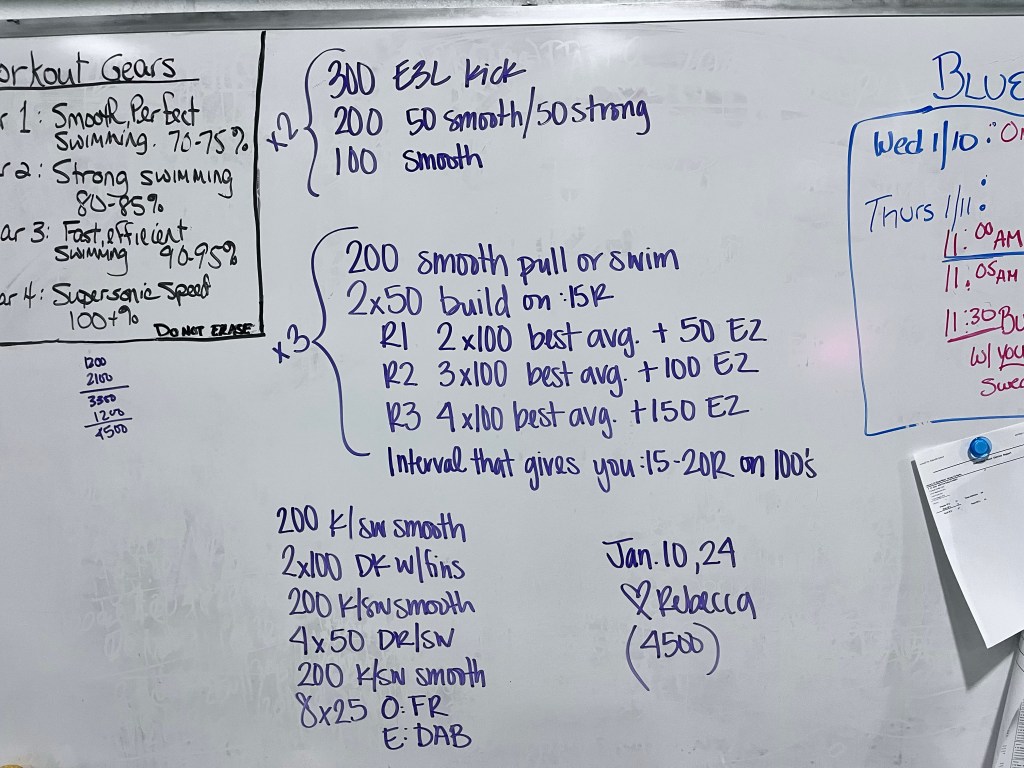 orkout Gears
r 1: Smooth, Perfect
swimming. 70-75%
r 2: Strong swimming
80-85%
ar 3: Fast, efficient
swimming 90-95%
ar 4: Supersonic Speed
100+%
DO NOT ERASE
1200
2100
3300
1200
4500
x2
300 E3L kick
200 50 smooth/50 strong
100 smooth
x3
200 smooth pull or swim
2x50 build on :15R
R1 2x100 best avg. + 50 EZ
R2 3x100 best avg. + 100 EZ
R3 4x100 best avg. + 150 EZ
Interval that gives you :15-20R on 100's
200 K/sw smooth
2x100 DK w/fins
200 K/sw smooth
4x50 DR/SW
200 K/sw smooth
8x25 O: FR
E: DAB
Jan. 10, 24
♡ Rebecca
(4500)
BLUE
Wed 1/10: Or
Thurs 1/11:
11:00 AM
11:05 AM
11:30 BU
w/ you
Swea